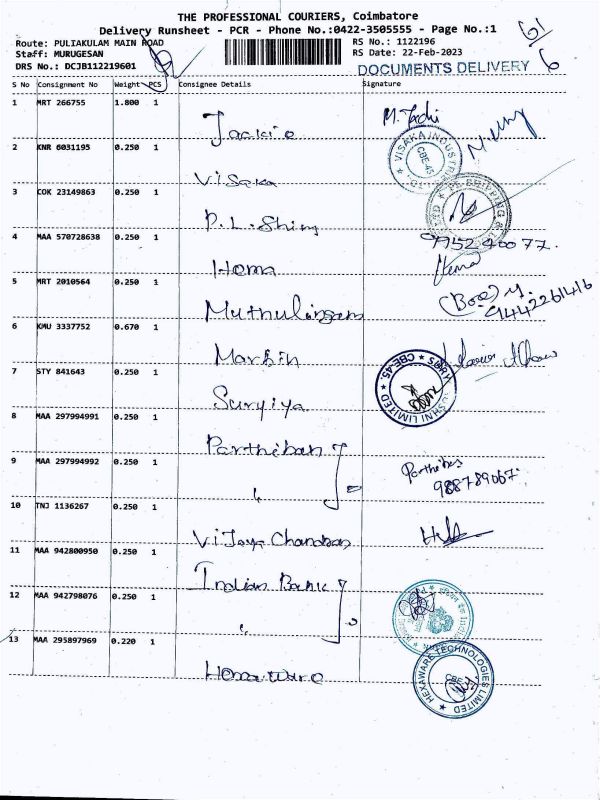 THE PROFESSIONAL COURIERS, Coimbatore
Delivery Runsheet - PCR - Phone No.:0422-3505555 - Page No.:1
Route: PULIAKULAM MAIN ROAD
RS No.: 1122196
Staff: MURUGESAN
RS Date: 22-Feb-2023
DRS No.: DCJB112219601
DOCUMENTS DELIVERY
S No Consignment No Weight PCS Consignee Details Signature
1 MRT 266755 1.800 1
Jackio
2 KNR 6031195 0.250 1
Visaka
VISAKA INDUSTRIES LTD. CBE-45
3 COK 23149863 0.250 1
P.L. Shiny
4 MAA 570728638 0.250 1
Hema
Hema
5 MRT 2010564 0.250 1
Muthulingam
9442261416
6 KMU 3337752 0.670 1
Marbin
7 STY 841643 0.250 1
Suryiya
LIMITED CBE-45
8 MAA 297994991 0.250 1
Parthiban
9 MAA 297994992 0.250 1
"
Parthiban
10 TNJ 1136267 0.250 1
Vijaya Chandran
11 MAA 942800950 0.250 1
Indian Bank
12 MAA 942798076 0.250 1
"
13 MAA 295897969 0.220 1
Hexaware
HEXAWARE TECHNOLOGIES LIMITED CBE